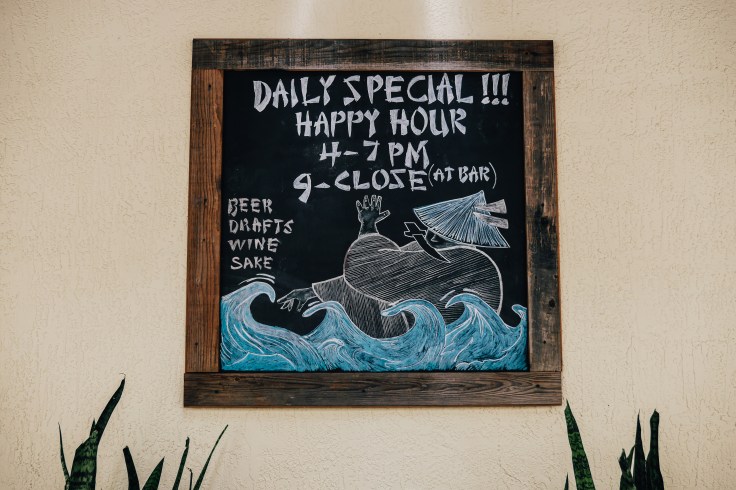 DAILY SPECIAL !!!
HAPPY HOUR
4-7 PM
9-CLOSE (AT BAR)
BEER
DRAFTS
WINE
SAKE